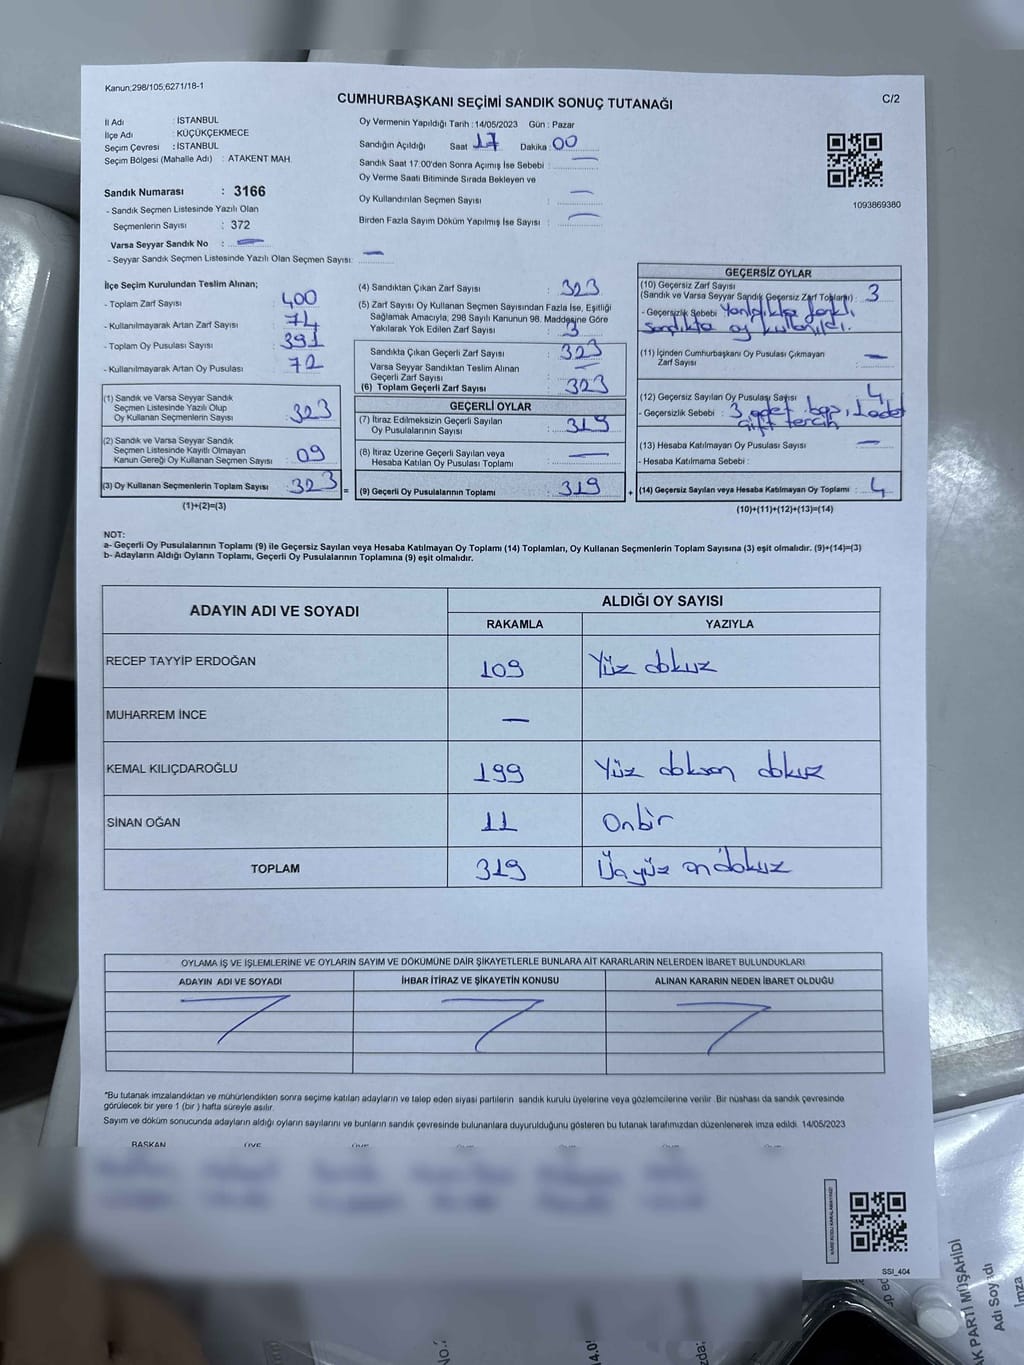 Kanun;298/105;6271/18-1
CUMHURBAŞKANI SEÇİMİ SANDIK SONUÇ TUTANAĞI
C/2
İl Adı : İSTANBUL
İlçe Adı : KÜÇÜKÇEKMECE
Seçim Çevresi : İSTANBUL
Seçim Bölgesi (Mahalle Adı) : ATAKENT MAH.
Sandık Numarası : 3166
- Sandık Seçmen Listesinde Yazılı Olan
Seçmenlerin Sayısı : 372
Varsa Seyyar Sandık No : —
- Seyyar Sandık Seçmen Listesinde Yazılı Olan Seçmen Sayısı: —
Oy Vermenin Yapıldığı Tarih : 14/05/2023 Gün : Pazar
Sandığın Açıldığı Saat 17 Dakika 00
Sandık Saat 17:00'den Sonra Açımış İse Sebebi : —
Oy Verme Saati Bitiminde Sırada Bekleyen ve
Oy Kullandırılan Seçmen Sayısı : —
Birden Fazla Sayım Döküm Yapılmış İse Sayısı : —
1093869380
İlçe Seçim Kurulundan Teslim Alınan;
- Toplam Zarf Sayısı : 400
- Kullanılmayarak Artan Zarf Sayısı : 74
- Toplam Oy Pusulası Sayısı : 391
- Kullanılmayarak Artan Oy Pusulası : 72
(1) Sandık ve Varsa Seyyar Sandık
Seçmen Listesinde Yazılı Olup
Oy Kullanan Seçmenlerin Sayısı : 323
(2) Sandık ve Varsa Seyyar Sandık
Seçmen Listesinde Kayıtlı Olmayan
Kanun Gereği Oy Kullanan Seçmen Sayısı : 09
(3) Oy Kullanan Seçmenlerin Toplam Sayısı : 323 =
(1)+(2)=(3)
(4) Sandıktan Çıkan Zarf Sayısı : 323
(5) Zarf Sayısı Oy Kullanan Seçmen Sayısından Fazla İse, Eşitliği
Sağlamak Amacıyla, 298 Sayılı Kanunun 98. Maddesine Göre
Yakılarak Yok Edilen Zarf Sayısı : 3
Sandıkta Çıkan Geçerli Zarf Sayısı : 323
Varsa Seyyar Sandıktan Teslim Alınan
Geçerli Zarf Sayısı : —
(6) Toplam Geçerli Zarf Sayısı : 323
GEÇERLİ OYLAR
(7) İtiraz Edilmeksizin Geçerli Sayılan
Oy Pusulalarının Sayısı : 319
(8) İtiraz Üzerine Geçerli Sayılan veya
Hesaba Katılan Oy Pusulası Toplamı : —
(9) Geçerli Oy Pusulalarının Toplamı : 319 +
GEÇERSİZ OYLAR
(10) Geçersiz Zarf Sayısı
(Sandık ve Varsa Seyyar Sandık Geçersiz Zarf Toplamı) : 3
- Geçersizlik Sebebi : Yanlışlıkla farklı
sandıkta oy kullanıldı.
(11) İçinden Cumhurbaşkanı Oy Pusulası Çıkmayan
Zarf Sayısı : —
(12) Geçersiz Sayılan Oy Pusulası Sayısı : 4
- Geçersizlik Sebebi : 3 adet boş, 1 adet
çift tercih
(13) Hesaba Katılmayan Oy Pusulası Sayısı : —
- Hesaba Katılmama Sebebi :
(14) Geçersiz Sayılan veya Hesaba Katılmayan Oy Toplamı : 4
(10)+(11)+(12)+(13)=(14)
NOT:
a- Geçerli Oy Pusulalarının Toplamı (9) ile Geçersiz Sayılan veya Hesaba Katılmayan Oy Toplamı (14) Toplamları, Oy Kullanan Seçmenlerin Toplam Sayısına (3) eşit olmalıdır. (9)+(14)=(3)
b- Adayların Aldığı Oyların Toplamı, Geçerli Oy Pusulalarının Toplamına (9) eşit olmalıdır.
ADAYIN ADI VE SOYADI
ALDIĞI OY SAYISI
RAKAMLA YAZIYLA
RECEP TAYYİP ERDOĞAN 109 Yüz dokuz
MUHARREM İNCE —
KEMAL KILIÇDAROĞLU 199 Yüz doksan dokuz
SİNAN OĞAN 11 Onbir
TOPLAM 319 Üçyüz ondokuz
OYLAMA İŞ VE İŞLEMLERİNE VE OYLARIN SAYIM VE DÖKÜMÜNE DAİR ŞİKAYETLERLE BUNLARA AİT KARARLARIN NELERDEN İBARET BULUNDUKLARI
ADAYIN ADI VE SOYADI İHBAR İTİRAZ VE ŞİKAYETİN KONUSU ALINAN KARARIN NEDEN İBARET OLDUĞU
*Bu tutanak imzalandıktan ve mühürlendikten sonra seçime katılan adayların ve talep eden siyasi partilerin sandık kurulu üyelerine veya gözlemcilerine verilir. Bir nüshası da sandık çevresinde
görülecek bir yere 1 (bir) hafta süreyle asılır.
Sayım ve döküm sonucunda adayların aldığı oyların sayılarını ve bunların sandık çevresinde bulunanlara duyurulduğunu gösteren bu tutanak tarafımızdan düzenlenerek imza edildi. 14/05/2023
BAŞKAN ÜYE
SSİ_404
K PARTİ MÜŞAHİDİ
Adı Soyadı
İmza